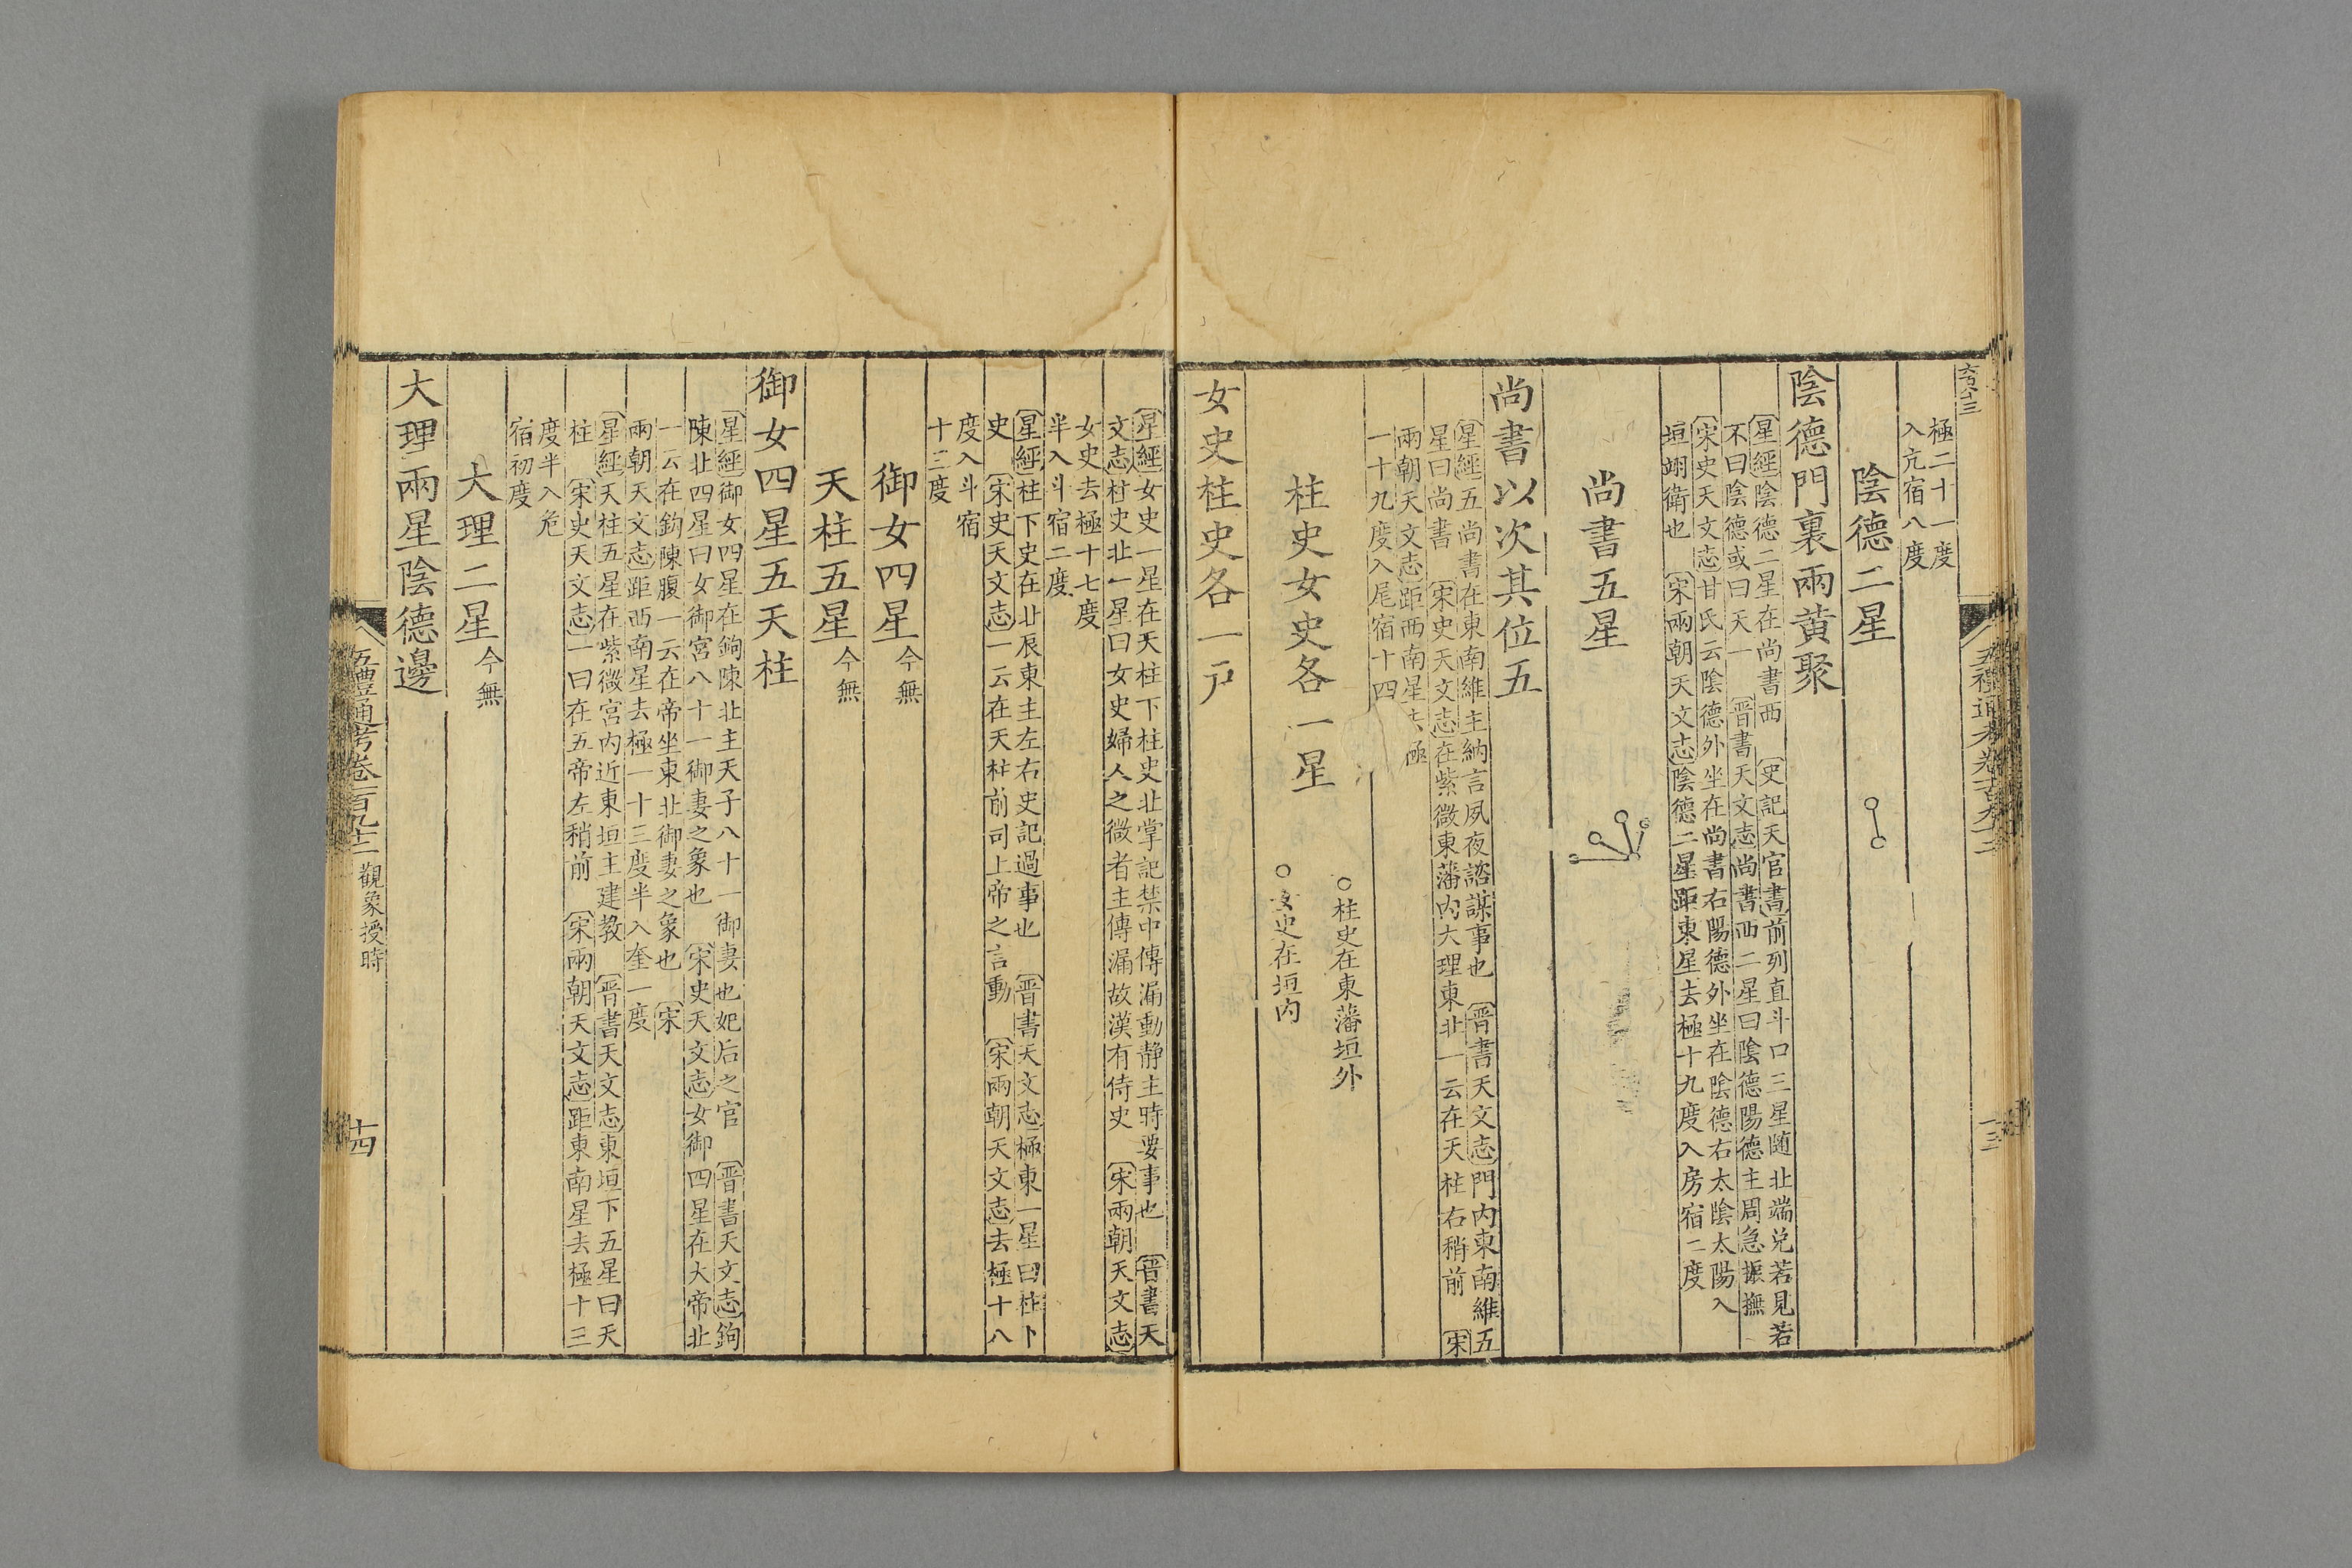 極二十一度
入亢宿八度
陰德二星
陰德門裏兩黃聚
〔星經〕陰德二星在尚書西 〔史記天官書〕前列直斗口三星隨北端兌若見若
不曰陰德或曰天一 〔晉書天文志〕尚書西二星曰陰德陽德主周急振撫
〔宋史天文志〕甘氏云陰德外坐在尚書右陽德外坐在陰德右太陰太陽入
垣翊衛也 〔宋兩朝天文志〕陰德二星距東星去極十九度入房宿二度
尚書五星
尚書以次其位五
〔星經〕五尚書在東南維主納言夙夜諮謀事也 〔晉書天文志〕門內東南維五
星曰尚書 〔宋史天文志〕在紫微東藩內大理東北一云在天柱右稍前 〔宋
兩朝天文志〕距西南星去極
一十九度入尾宿十四
柱史女史各一星
○柱史在東藩垣外
○女史在垣內
女史柱史各一戶
〔星經〕女史一星在天柱下柱史北掌記禁中傳漏動静主時要事也 〔晉書天
文志〕柱史北一星曰女史婦人之微者主傳漏故漢有侍史 〔宋兩朝天文志〕
女史去極十七度
半入斗宿二度
〔星經〕柱下史在北辰東主左右史記過事也 〔晉書天文志〕極東一星曰柱下
史 〔宋史天文志〕一云在天柱前司上帝之言動 〔宋兩朝天文志〕去極十八
度入斗宿
十三度
御女四星今無
天柱五星今無
御女四星五天柱
〔星經〕御女四星在鉤陳北主天子八十一御妻也妃后之官 〔晉書天文志〕鉤
陳北四星曰女御宮八十一御妻之象也 〔宋史天文志〕女御四星在大帝北
一云在鉤陳腹一云在帝坐東北御妻之象也 〔宋
兩朝天文志〕距西南星去極一十三度半入奎一度
〔星經〕天柱五星在紫微宮內近東垣主建教 〔晉書天文志〕東垣下五星曰天
柱 〔宋史天文志〕一曰在五帝左稍前 〔宋兩朝天文志〕距東南星去極十三
度半入危
宿初度
大理二星今無
大理兩星陰德邊
五禮通考卷一百九十二 觀象授時
十四